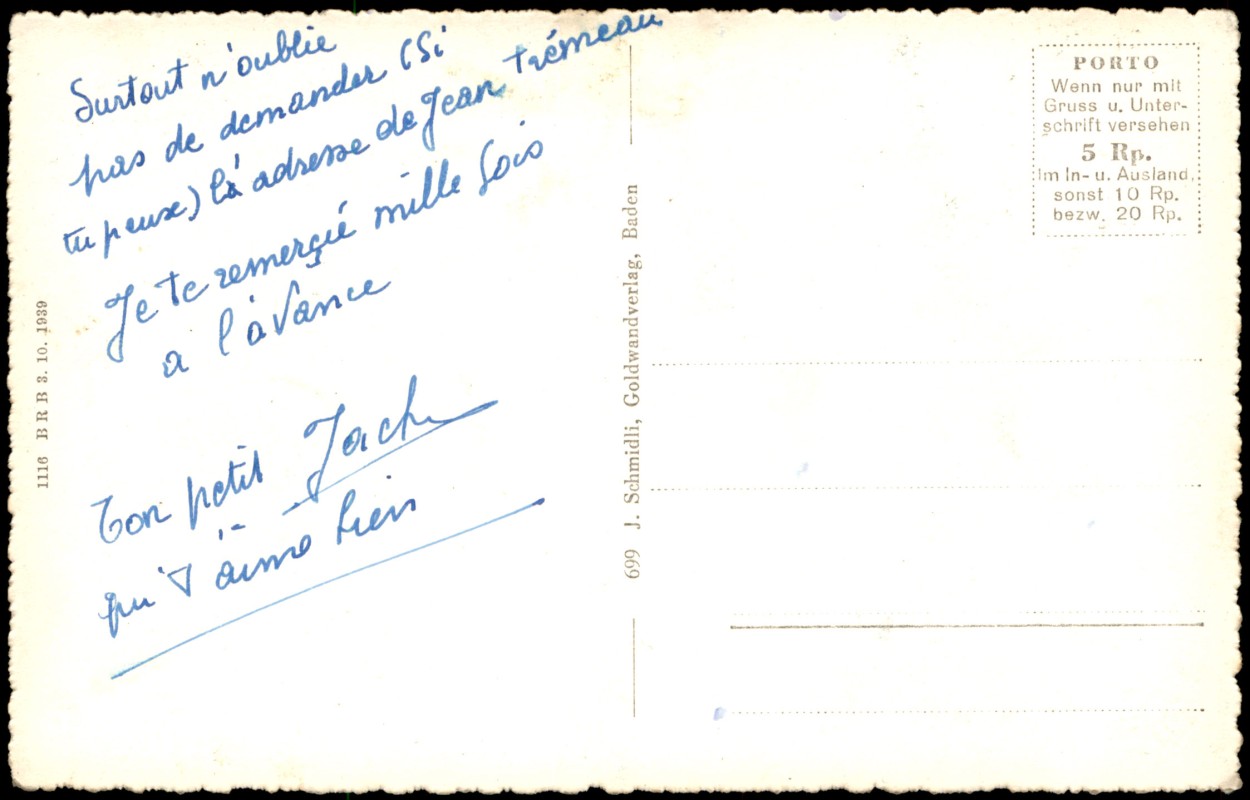 Surtout n'oublie
pas de demander (Si
tu peuse) là adresse de Jean Trémeau
Je te remerçié mille fois
a l'àvance
Ton petit Jack
qui t'aime bien
1116 B R B 3. 10. 1939
699 J. Schmidli, Goldwandverlag, Baden
PORTO
Wenn nur mit
Gruss u. Unter-
schrift versehen
5 Rp.
Im In- u. Ausland,
sonst 10 Rp.
bezw. 20 Rp.